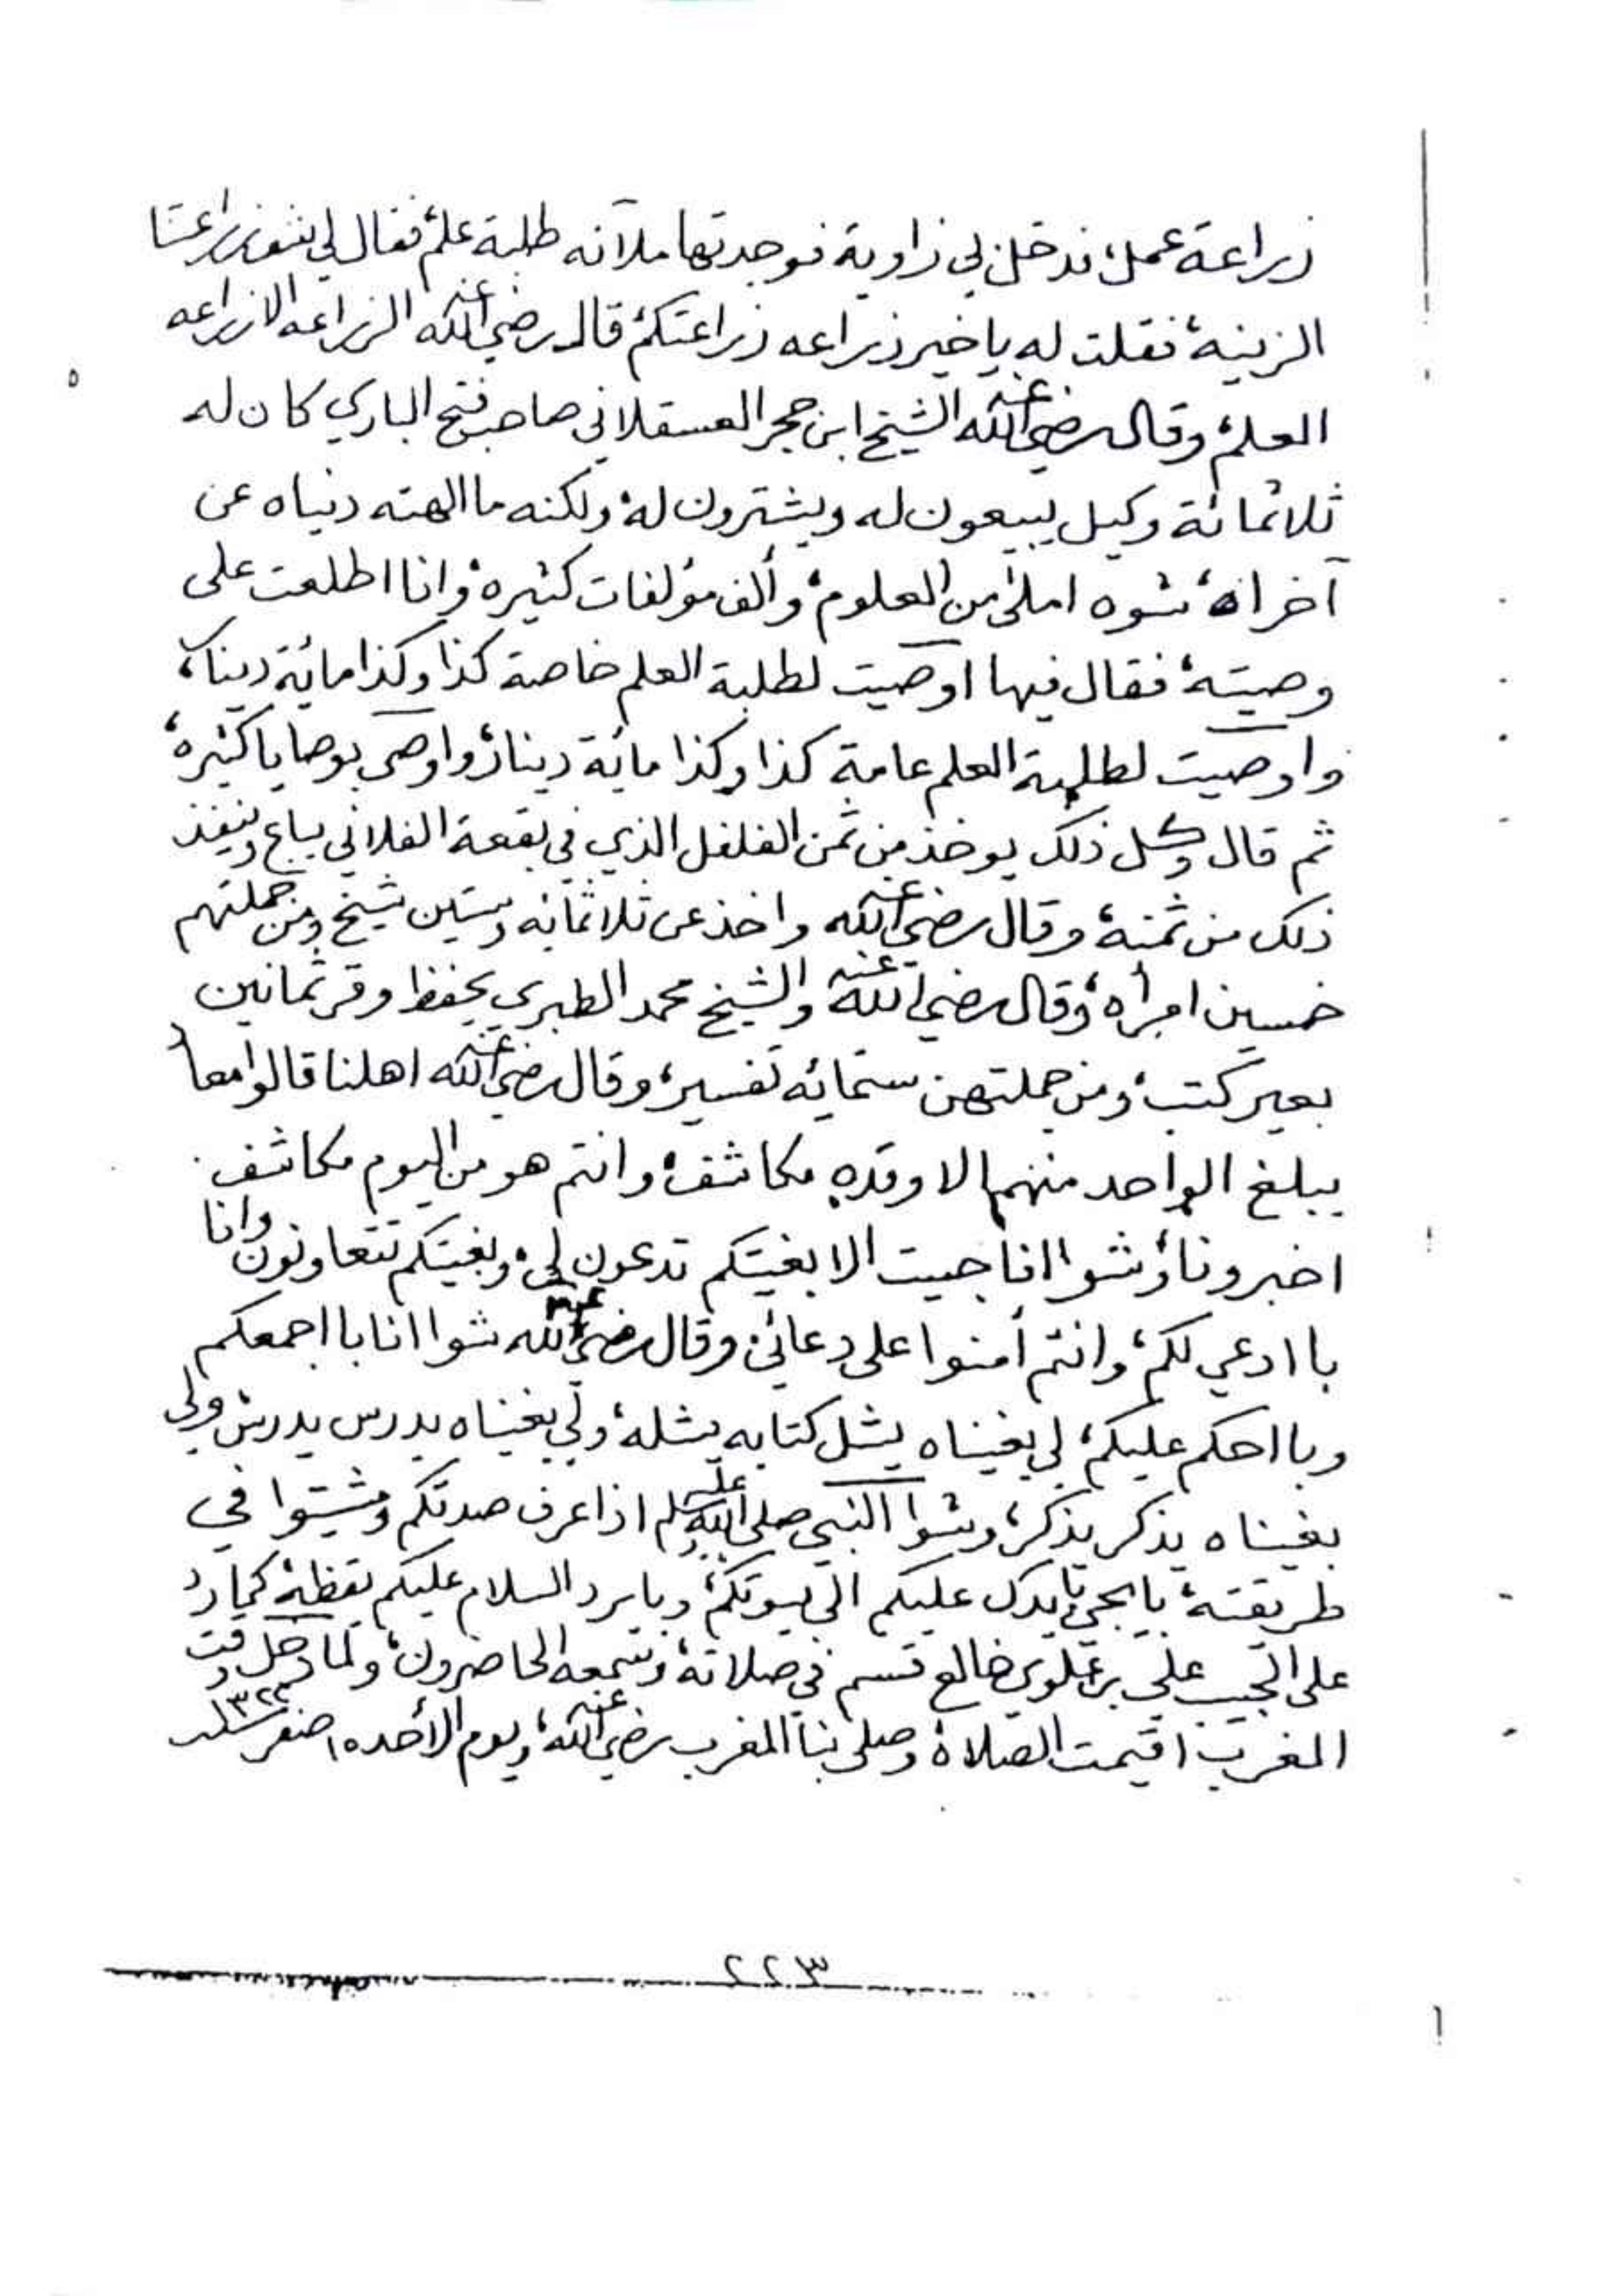 زراعة عمل، فدخلن لي زاوية فوجدتها ملآنه طلبة علم، فقال لي شف زراعتنا
الزينه، فقلت له يا خير زراعه زراعتكم، قال رضي الله عنه الزراعه الا زراعه
العلم، وقال رضي الله عنه الشيخ ابن حجر العسقلاني صاحب فتح الباري كان له
ثلاثمائة وكيل يبيعون له ويشترون له، ولكنه ما الهته دنياه عن
آخراه، شوه املئ من العلوم، وألف مؤلفات كثيره، وانا اطلعت على
وصيته، فقال فيها اوصيت لطلبة العلم خاصة كذا وكذا مائة دينار،
واوصيت لطلبة العلم عامة كذا وكذا مائة دينار، واوصى بوصايا كثيره،
ثم قال وكل ذلك يوخذ من ثمن الفلفل الذي في بقعة الفلاني يباع وينفذ
ذلك من ثمنه، وقال رضي الله عنه واخذ عن ثلاثمائه وستين شيخ ومن جملتهم
خمسين امرأه، وقال رضي الله عنه والشيخ محمد الطبري يحفظ وقر ثمانين
بعير كتب، ومن جملتهن ستمائه تفسير، وقال رضي الله عنه اهلنا قالوا معاد
يبلغ الواحد منهم الا وقده مكاشف، وانتم هو من اليوم مكاشف
اخبرونا، وشوا انا جيت الا بغيتكم تدعون لي، وبغيتكم تتعاونون وانا
با ادعي لكم، وانتم أمنوا على دعائي، وقال رضي الله عنه شوا انا با اجمعكم
وبا احكم عليكم، لي بغيناه يشل كتابه يشله، ولي بغيناه يدرس يدرس، ولي
بغيناه يذكر يذكر، وشوا النبي صلى الله عليه وسلم اذا عرف صدقكم ومشيتوا في
طريقته، با يجي يدكل عليكم الى بيوتكم، وبا يرد السلام عليكم يقظة، كما رد
على الحبيب علي بن علوي خالع قسم في صلاته، ويسمعه الحاضرون، ولما دخل وقت
المغرب اقيمت الصلاة وصلى بنا المغرب رضي الله عنه، ويوم الأحد ١٥ صفر سنة ١٣٢٢
٢٢٣